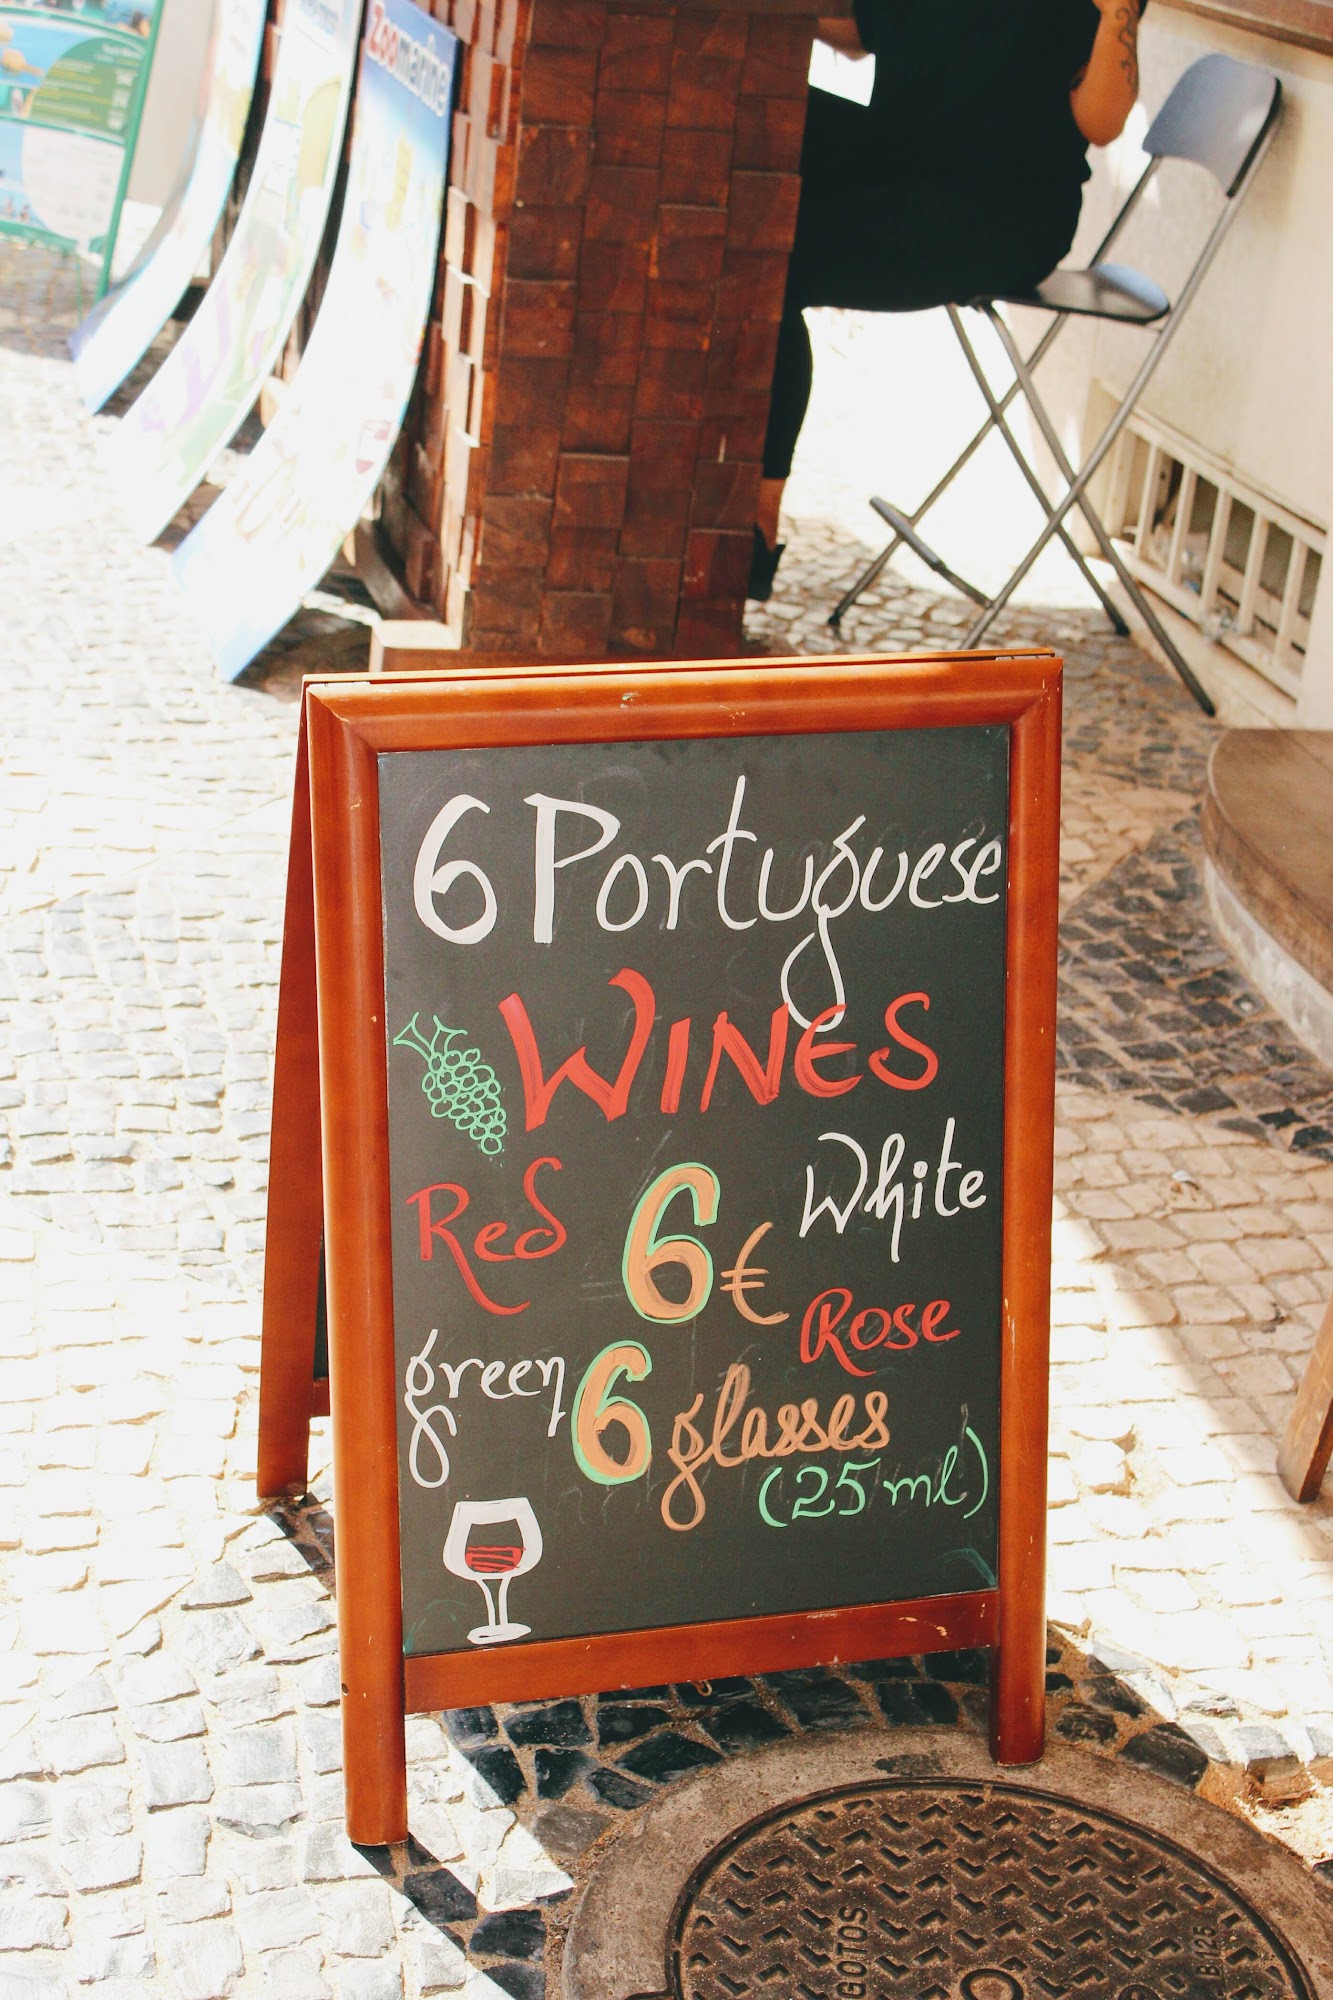 Zoomarine
6 Portuguese
WINES
Red 6€ White
Rose
green 6 glasses
(25 ml)
GOTOS
B125